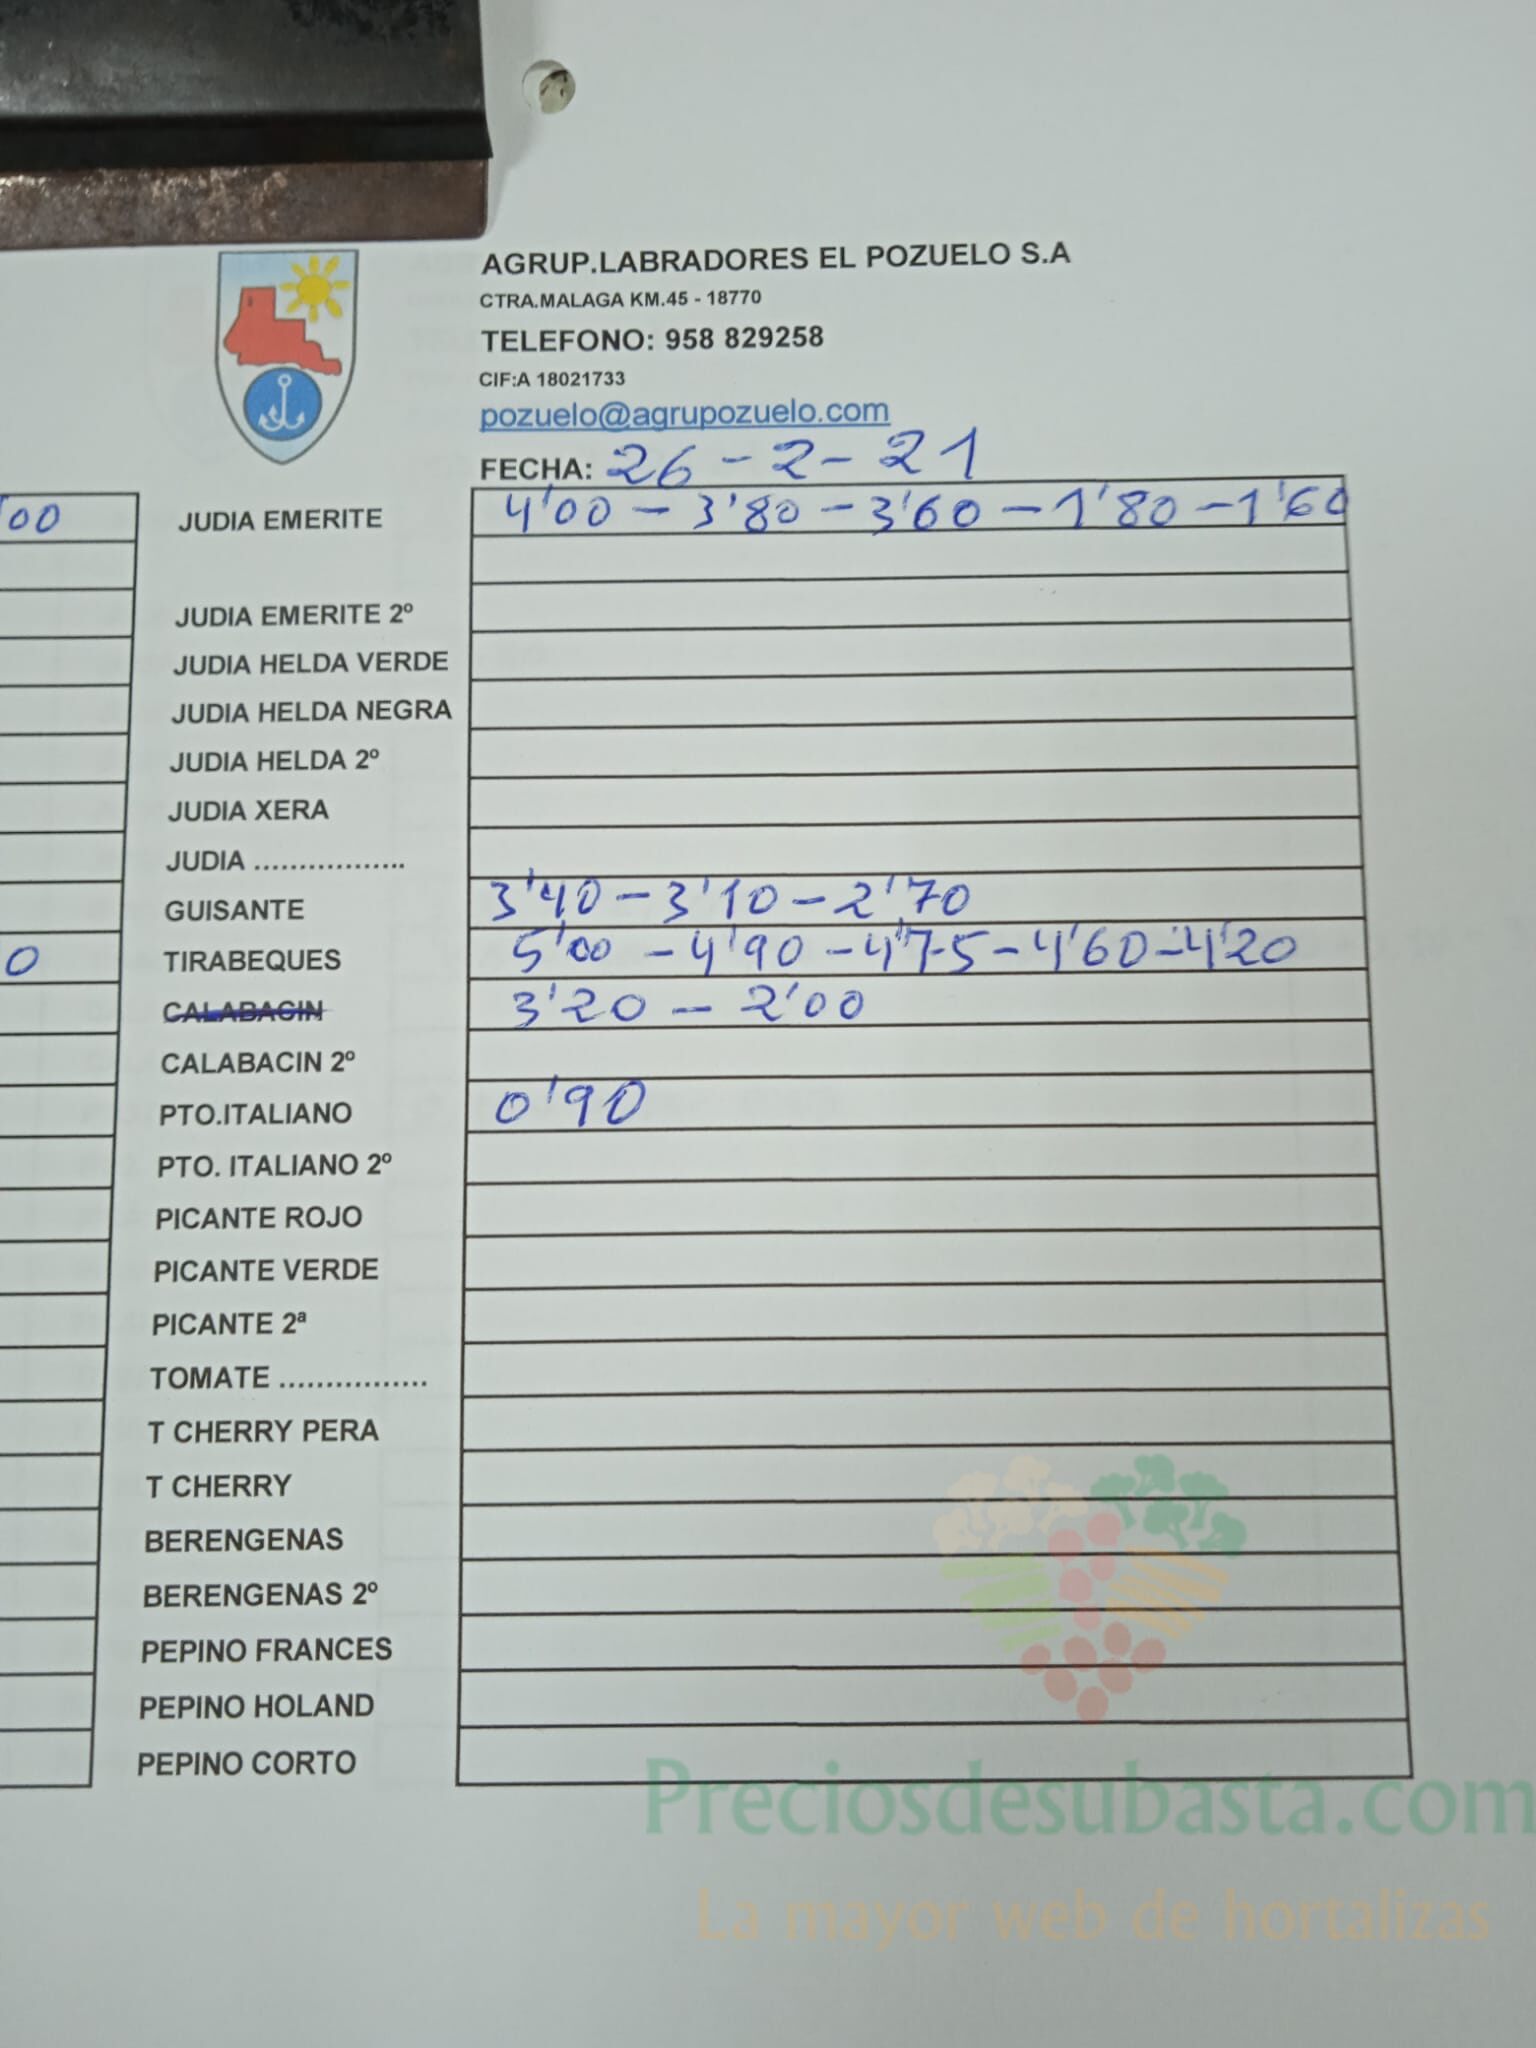 AGRUP.LABRADORES EL POZUELO S.A
CTRA.MALAGA KM.45 - 18770
TELEFONO: 958 829258
CIF:A 18021733
pozuelo@agrupozuelo.com
FECHA: 26-2-21
00 JUDIA EMERITE 4'00 - 3'80 - 3'60 - 1'80 - 1'60
JUDIA EMERITE 2º
JUDIA HELDA VERDE
JUDIA HELDA NEGRA
JUDIA HELDA 2º
JUDIA XERA
JUDIA .................
GUISANTE 3'40 - 3'10 - 2'70
0 TIRABEQUES 5'00 - 4'90 - 4'75 - 4'60 - 4'20
CALABACIN 3'20 - 2'00
CALABACIN 2º
PTO.ITALIANO 0'90
PTO. ITALIANO 2º
PICANTE ROJO
PICANTE VERDE
PICANTE 2ª
TOMATE ................
T CHERRY PERA
T CHERRY
BERENGENAS
BERENGENAS 2º
PEPINO FRANCES
PEPINO HOLAND
PEPINO CORTO
Preciosdesubasta.com
La mayor web de hortalizas